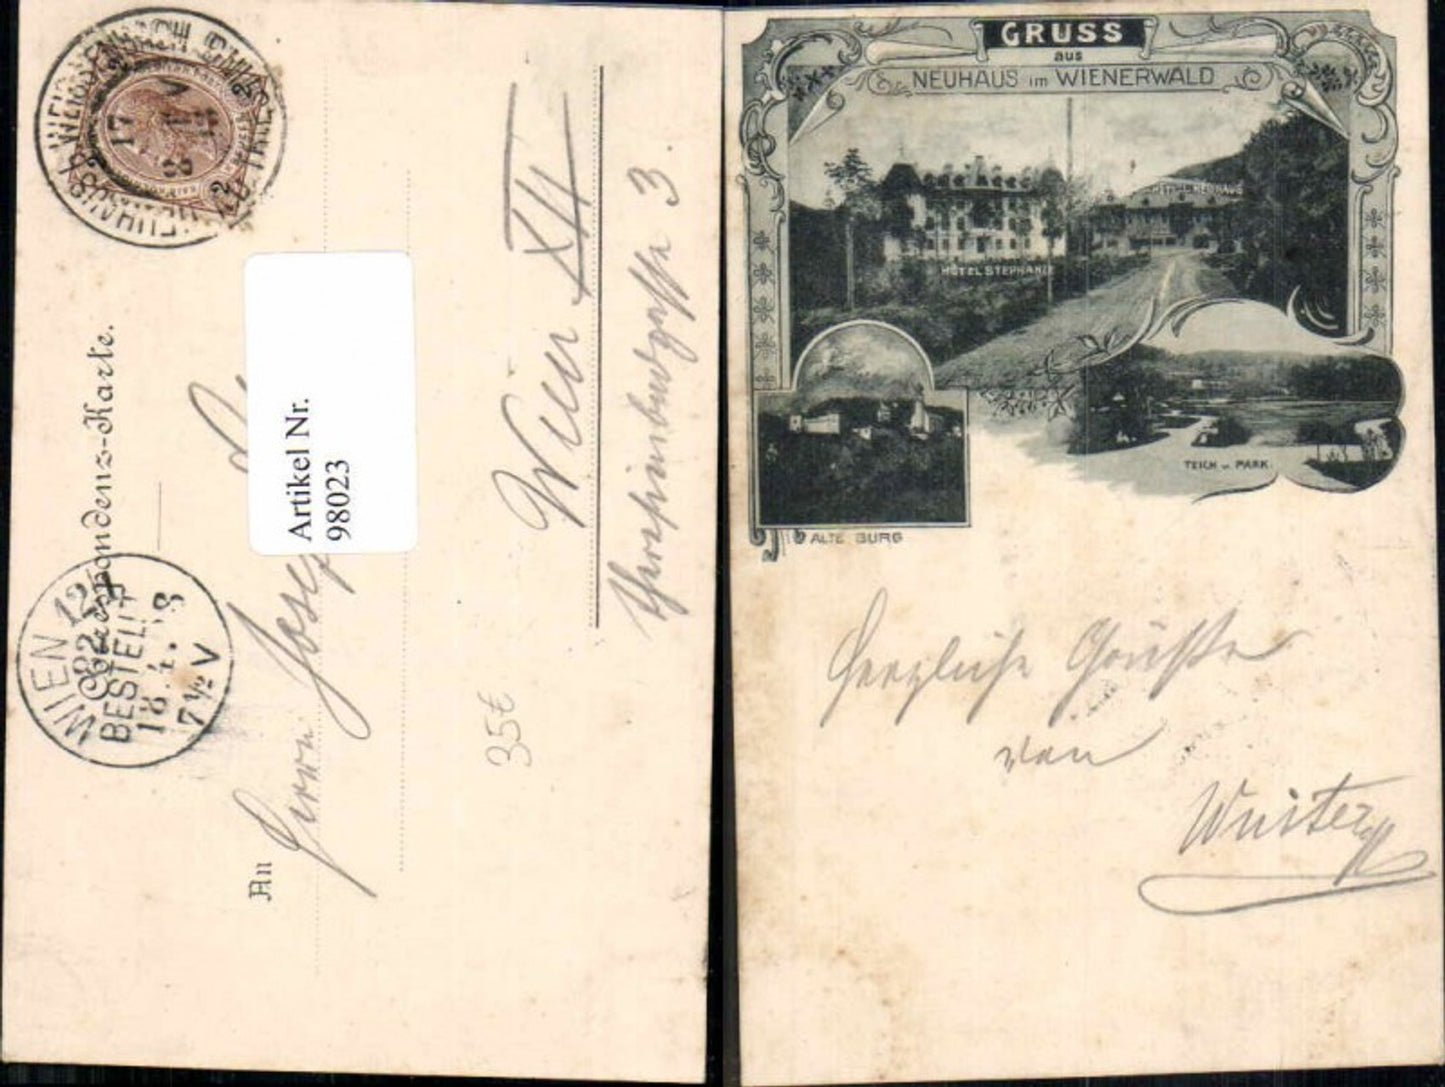 Correspondenz-Karte.
WIEN 12/1
BESTELLT
18. 4. 98
7 ½ V
17
An
Herrn Josef
Artikel Nr.
98023
Wien XII
3
35€
GRUSS
aus
NEUHAUS im WIENERWALD
HOTEL NEUHAUS
HOTEL STEPHANIE
TEICH u. PARK.
ALTE BURG
Herzliche Grüße
von